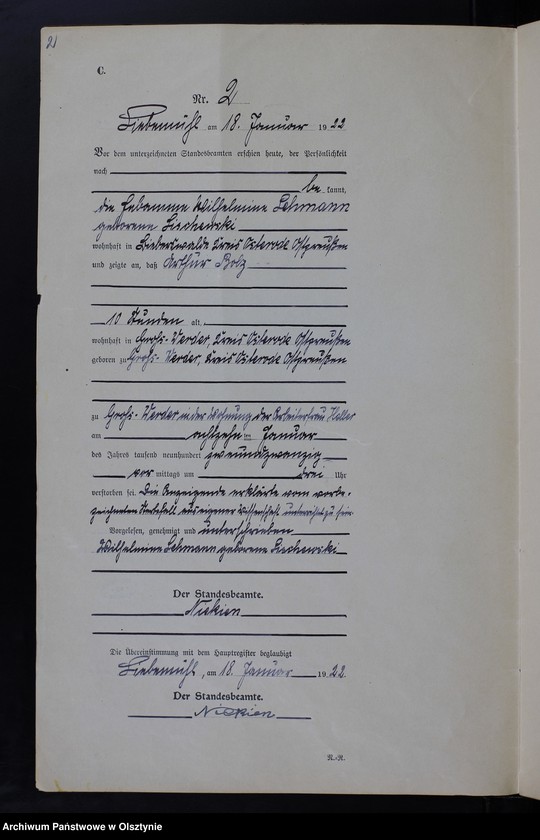 21
C.
Nr. 2
Liebemühl am 18. Januar 1922
Vor dem unterzeichneten Standesbeamten erschien heute, der Persönlichkeit
nach
be kannt,
die Hebamme Wilhelmine Lehmann
geborene Lischewski
wohnhaft in Bieberswalde Kreis Osterode Ostpreußen
und zeigte an, daß Arthur Bolz
10 Stunden alt,
wohnhaft in Groß-Werder, Kreis Osterode Ostpreußen
geboren zu Groß-Werder, Kreis Osterode Ostpreußen
zu Groß-Werder in der Wohnung der Arbeiterfrau
am achtzehn ten Januar
des Jahrs tausend neunhundert zweiundzwanzig
vor mittags um drei Uhr
verstorben sei. Die Anzeigende erklärte von vorbe-
zeichneten Sterbefall aus eigener Wissenschaft unterrichtet zu sein.
Vorgelesen, genehmigt und unterschrieben
Wilhelmine Lehmann geborene Lischewski
Der Standesbeamte.
Die Übereinstimmung mit dem Hauptregister beglaubigt
Liebemühl, am 18. Januar 1922
Der Standesbeamte.
R.-R.
Archiwum Państwowe w Olsztynie